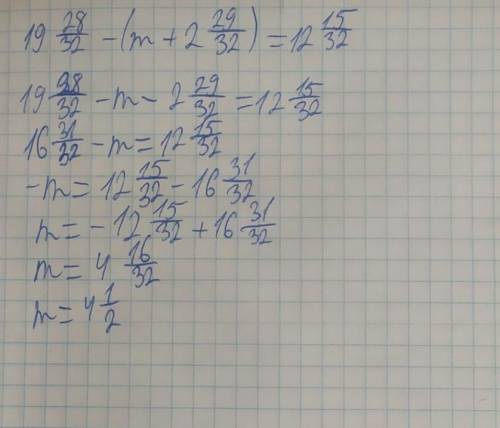 19 28/32 - (m + 2 29/32) = 12 15/32
19 28/32 - m - 2 29/32 = 12 15/32
16 31/32 - m = 12 15/32
-m = 12 15/32 - 16 31/32
m = -12 15/32 + 16 31/32
m = 4 16/32
m = 4 1/2